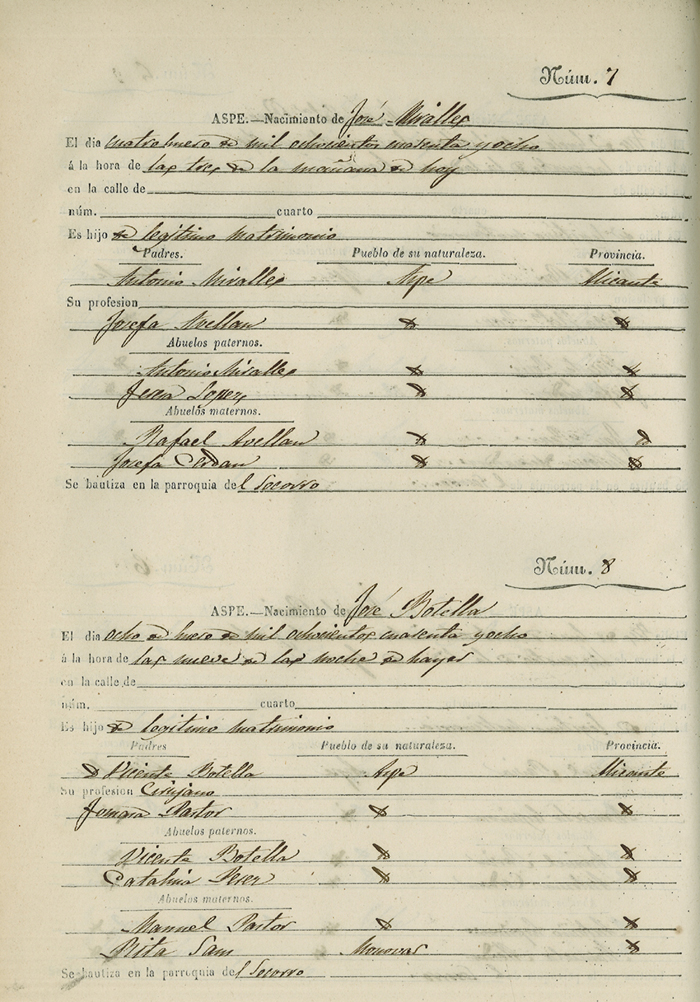 Núm. 7
ASPE.—Nacimiento de José Miralles
El dia cuatro henero de mil ochosientos cuarenta y ocho
á la hora de las tres de la mañana de hoy
en la calle de
núm. cuarto
Es hijo de legitimo matrimonio
Padres. Pueblo de su naturaleza. Provincia.
Antonio Miralles Aspe Alicante
Su profesion
Josefa Avellan
Abuelos paternos.
Antonio Miralles
Lopez
Abuelos maternos.
Rafael Avellan
Josefa Cerdan
Se bautiza en la parroquia del Socorro
Núm. 8
ASPE.—Nacimiento de José Botella
El dia ocho de henero de mil ochosientos cuarenta y ocho
á la hora de las nueve de las noche de hayer
en la calle de
núm. cuarto
Es hijo de legitimo matrimonio
Padres Pueblo de su naturaleza. Provincia.
Vicente Botella Aspe Alicante
Su profesion Cirujano
Pastor
Abuelos paternos.
Vicente Botella
Catalina Perez
Abuelos maternos.
Manuel Pastor
Rita Sans Monovar
Se bautiza en la parroquia del Socorro